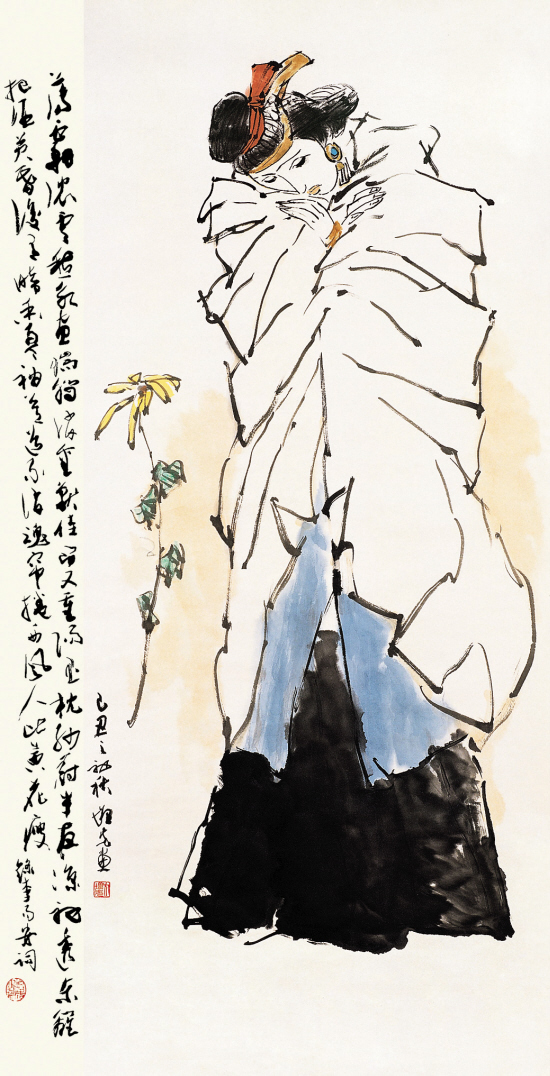 薄雾浓云愁永昼瑞脑消金兽佳节又重阳玉枕纱厨半夜凉初透东篱
把酒黄昏后有暗香盈袖莫道不消魂帘卷西风人比黄花瘦 录李易安词
己丑之初秋 画